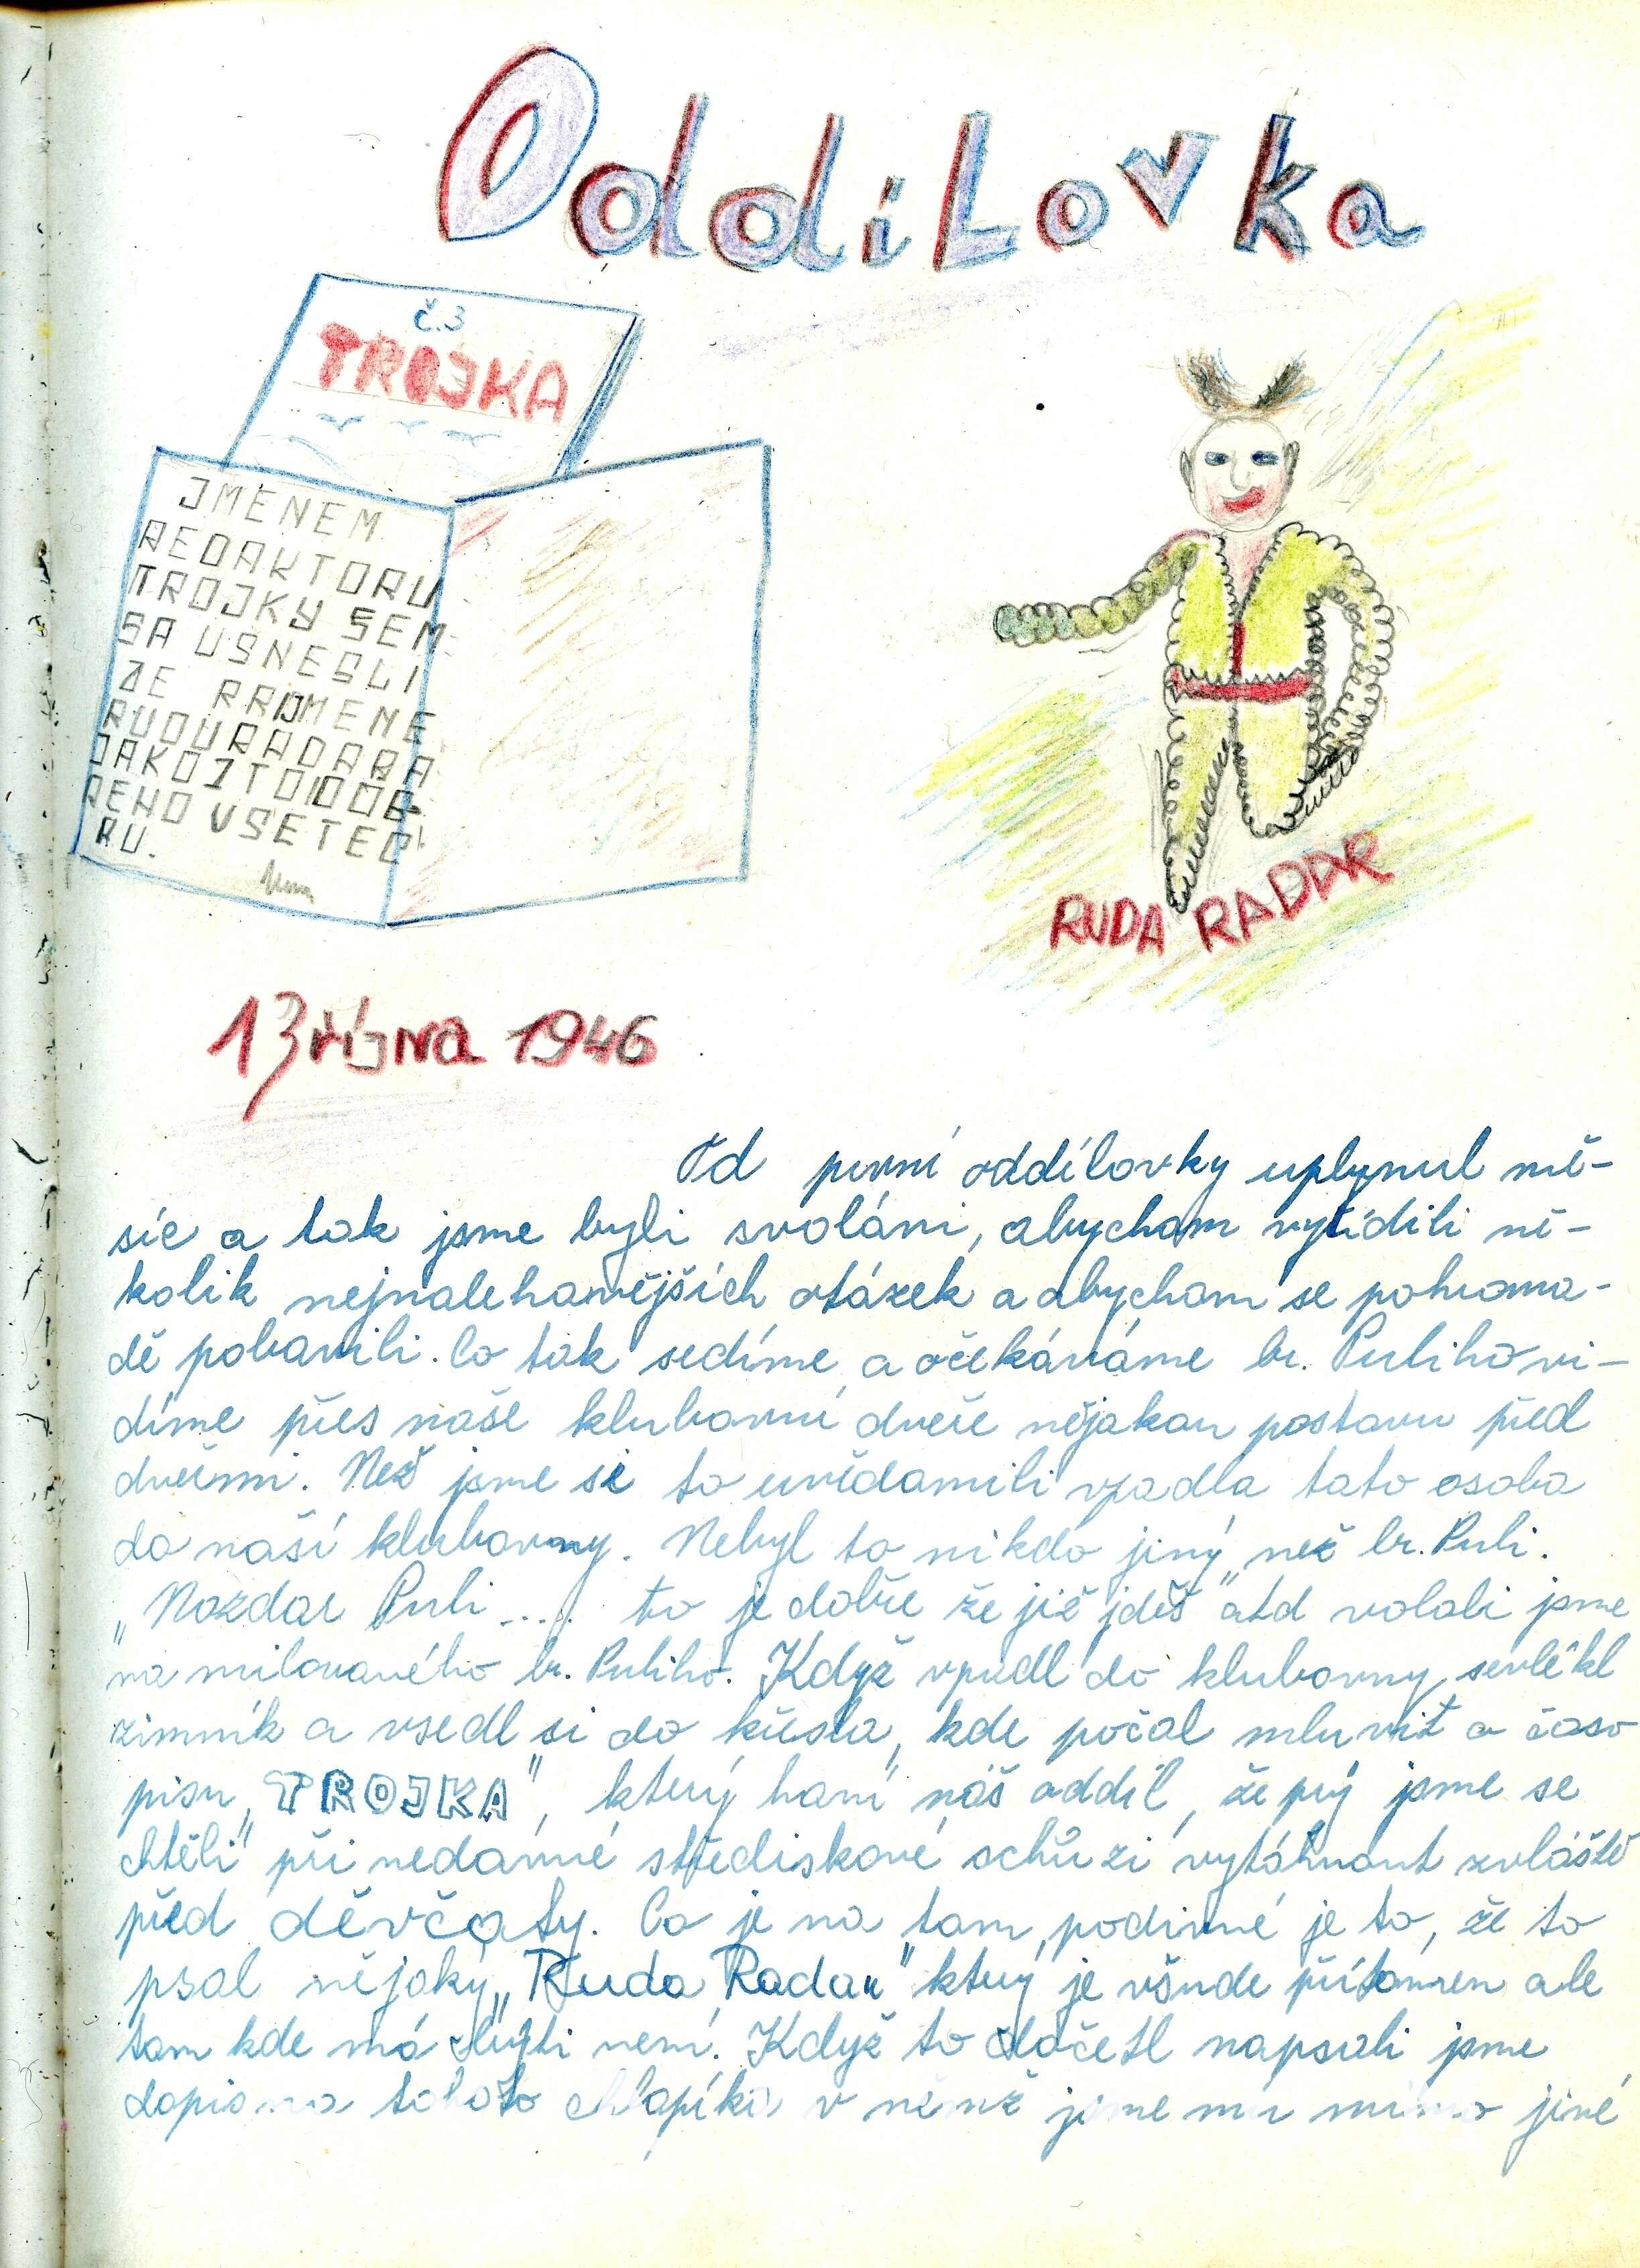 OddiLovka
č.3
TROJKA
JMENEM
REDAKTORU
TROJKY SEM
SA USNESLI
ŽE PRIJMENE
RUDU RADARA
JAKOŽTO DOB
JEHO VSETEC
KU.
RUDA RADAR
13 října 1946
Od první oddílovky uplynul mě-
síc a tak jsme byli svoláni, abychom vyřídili ně-
kolik nejnalehavějších otázek a abychom se pohroma-
dě pobavili. Co tak sedíme a očekáváme br. Puliho vi-
díme přes naše klubovní dveře nějakou postavu před
dveřmi. Než jsme si to uvědomili vpadla tato osoba
do naší klubovny. Nebyl to nikdo jiný než br. Puli.
„Nazdar Puli .... to je dobře že již jdeš" atd volali jsme
na milovaného br. Puliho. Když vpadl do klubovny, svlékl
zimník a vsedl si do křesla, kde počal mluvit o časo
pisu „TROJKA", který haní náš oddíl, že prý jsme se
chtěli" při nedávné střediskové schůzi vytáhnout zvláště
před děvčaty. Co je na tom podivné je to, že to
psal nějaký „Ruda Radar" který je všude přítomen ale
tam kde má býti není. Když to dočetl napsali jsme
dopis na tohoto chlapíka v němž jsme mu mimo jiné